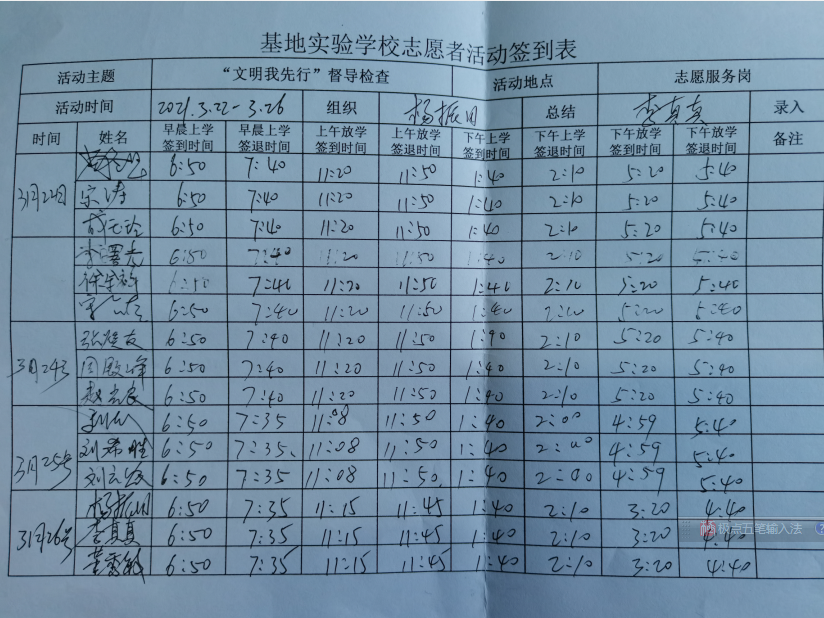 基地实验学校志愿者活动签到表
活动主题 “文明我先行”督导检查 活动地点 志愿服务岗
活动时间 2021.3.22-3.26 组织 杨振国 总结 李真真 录入
时间 姓名 早晨上学签到时间 早晨上学签退时间 上午放学签到时间 上午放学签退时间 下午上学签到时间 下午上学签退时间 下午放学签到时间 下午放学签退时间 备注
3月22日 6:50 7:40 11:20 11:50 1:40 2:10 5:20 5:40
宋涛 6:50 7:40 11:20 11:50 1:40 2:10 5:20 5:40
6:50 7:40 11:20 11:50 1:40 2:10 5:20 5:40
6:50 7:40 11:20 11:50 1:40 2:10 5:20 5:40
6:50 7:40 11:20 11:50 1:40 2:10 5:20 5:40
6:50 7:40 11:20 11:50 1:40 2:10 5:20 5:40
6:50 7:40 11:20 11:50 1:40 2:10 5:20 5:40
3月24号 6:50 7:40 11:20 11:50 1:40 2:10 5:20 5:40
6:50 7:40 11:20 11:50 1:40 2:10 5:20 5:40
6:50 7:35 11:08 11:50 1:40 2:00 4:59 5:40
3月25号 刘希胜 6:50 7:35 11:08 11:50 1:40 2:00 4:59 5:40
6:50 7:35 11:08 11:50 1:40 2:00 4:59 5:40
杨振国 6:50 7:35 11:15 11:45 1:40 2:10 3:20 4:40
3月26号 李真真 6:50 7:35 11:15 11:45 1:40 2:10 3:20 4:40
6:50 7:35 11:15 11:45 1:40 2:10 3:20 4:40
极点五笔输入法